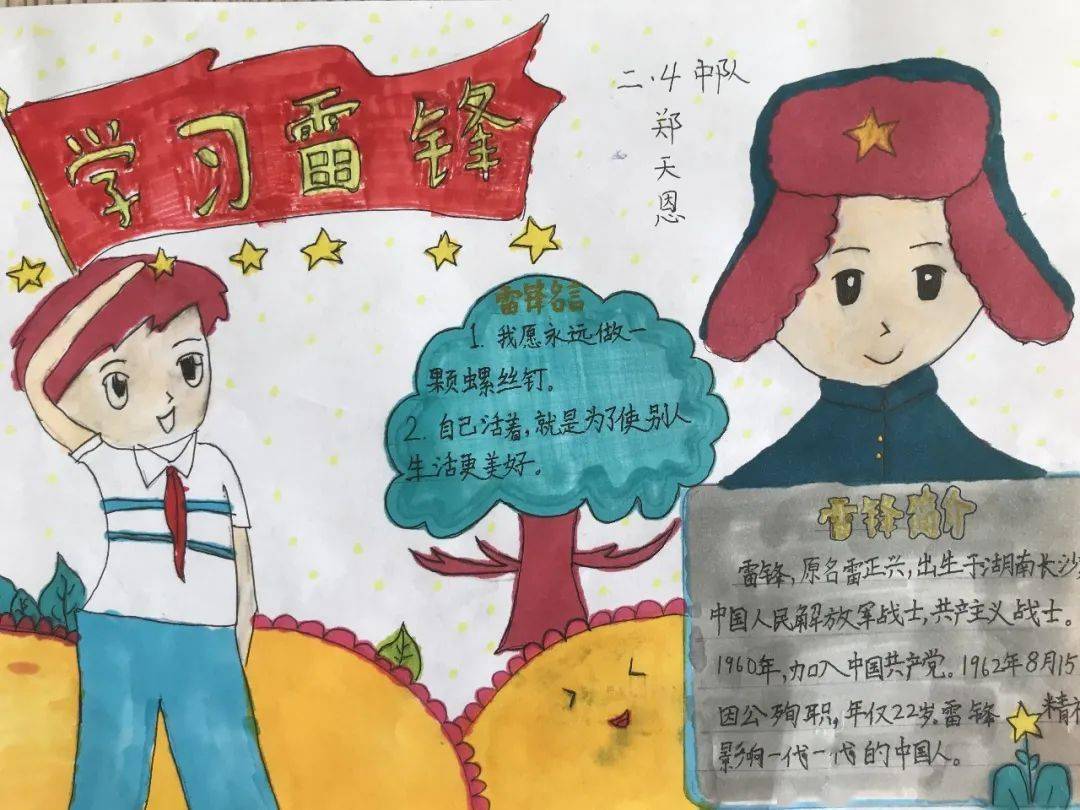 学习雷锋
二·4中队
郑天恩
雷锋名言
1. 我愿永远做一
颗螺丝钉。
2. 自己活着,就是为了使别人
生活更美好。
雷锋简介
雷锋,原名雷正兴,出生于湖南长沙
中国人民解放军战士,共产主义战士。
1960年,加入中国共产党。1962年8月15
因公殉职,年仅22岁.雷锋 精神
影响一代一代的中国人。